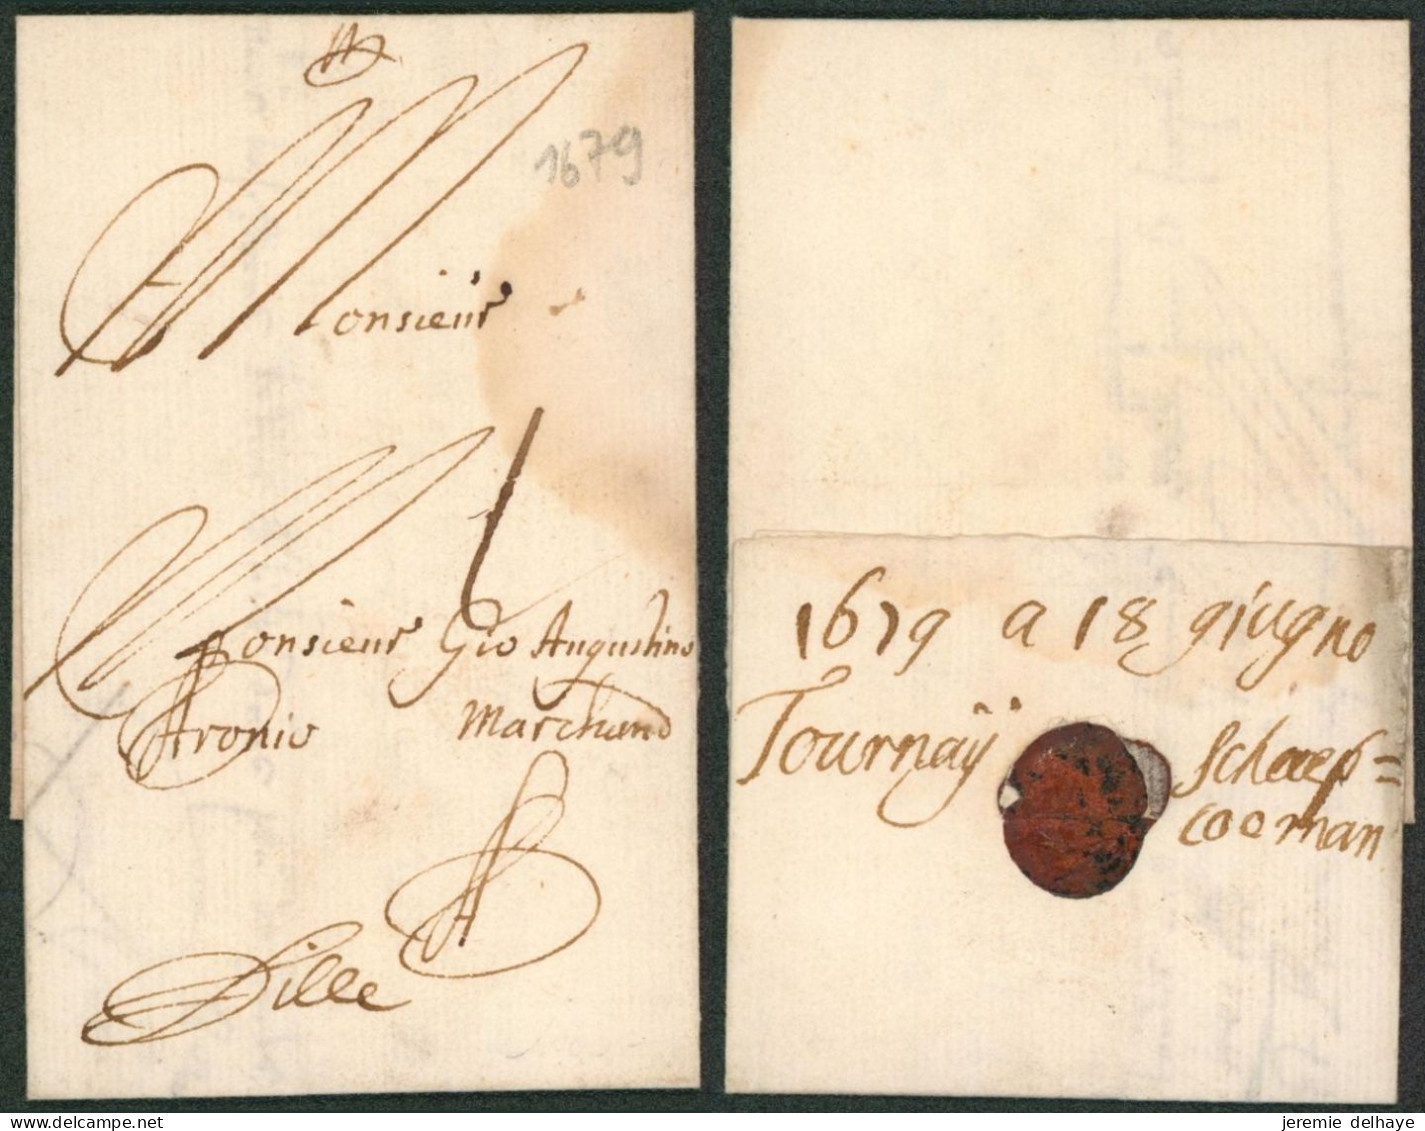 1679
Monsieur
1
Monsieur Gio Augustino
Aronio Marchand
Lille
1679 a 18 giugno
Tournaÿ Schaep=
coeman
jeremie delhaye